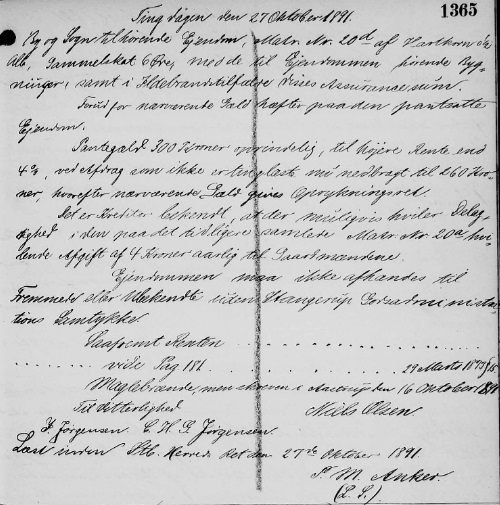 1365
Ting dagen den 27 Oktober 1891.
By og Sogn tilhørende Ejendom, Matr. Nr. 20d af Hartkorn
Alb, Gammelskat 6 Øre, med de til Ejendommen hørende Byg-
ninger, samt i Ildebrandstilfælde disses Assurancesum.
Forud for nærværende Gæld hæfter paa den pantsatte
Ejendom.
Pantegæld 300 Kroner oprindelig, til højere Rente end
4%, ved Afdrag som ikke er tinglæst, nu nedbragt til 260 Kro-
ner, hvorefter nærværende Gæld gives Oprykningsret.
Det er Kreditor bekendt, at der muligvis hviler Delag-
tighed i den paa det tidligere samlede Matr. Nr. 20a hvi-
lende Afgift af 4 Kroner aarlig til Gaardmændene.
Ejendommen maa ikke afhændes til
Fremmede eller Ubekendte uden Stangerup Godsadministra-
tions Samtykke.
Saafremt Renten
vide Pag 181. 29 Marts 1893
Maglebrænde, men skreven i den 16 Oktober 1891
Til Vitterlighed Niels Olsen
J. Jørgensen. C. H. G. Jørgensen.
Læst inden Stb. Herreds Ret den 27de Oktober 1891.
P. M. Anker.
(L. S.)